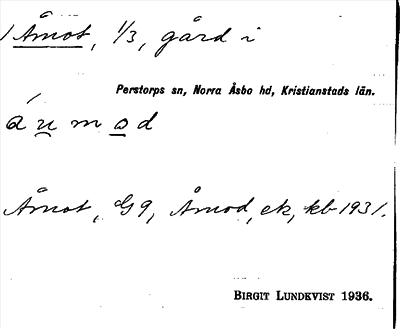 1 Åmot, 1/3, gård i
Perstorps sn, Norra Åsbo hd, Kristianstads län.
á u m o d
Åmot, G 9, Åmod, ek, kb 1931.
BIRGIT LUNDKVIST 1936.